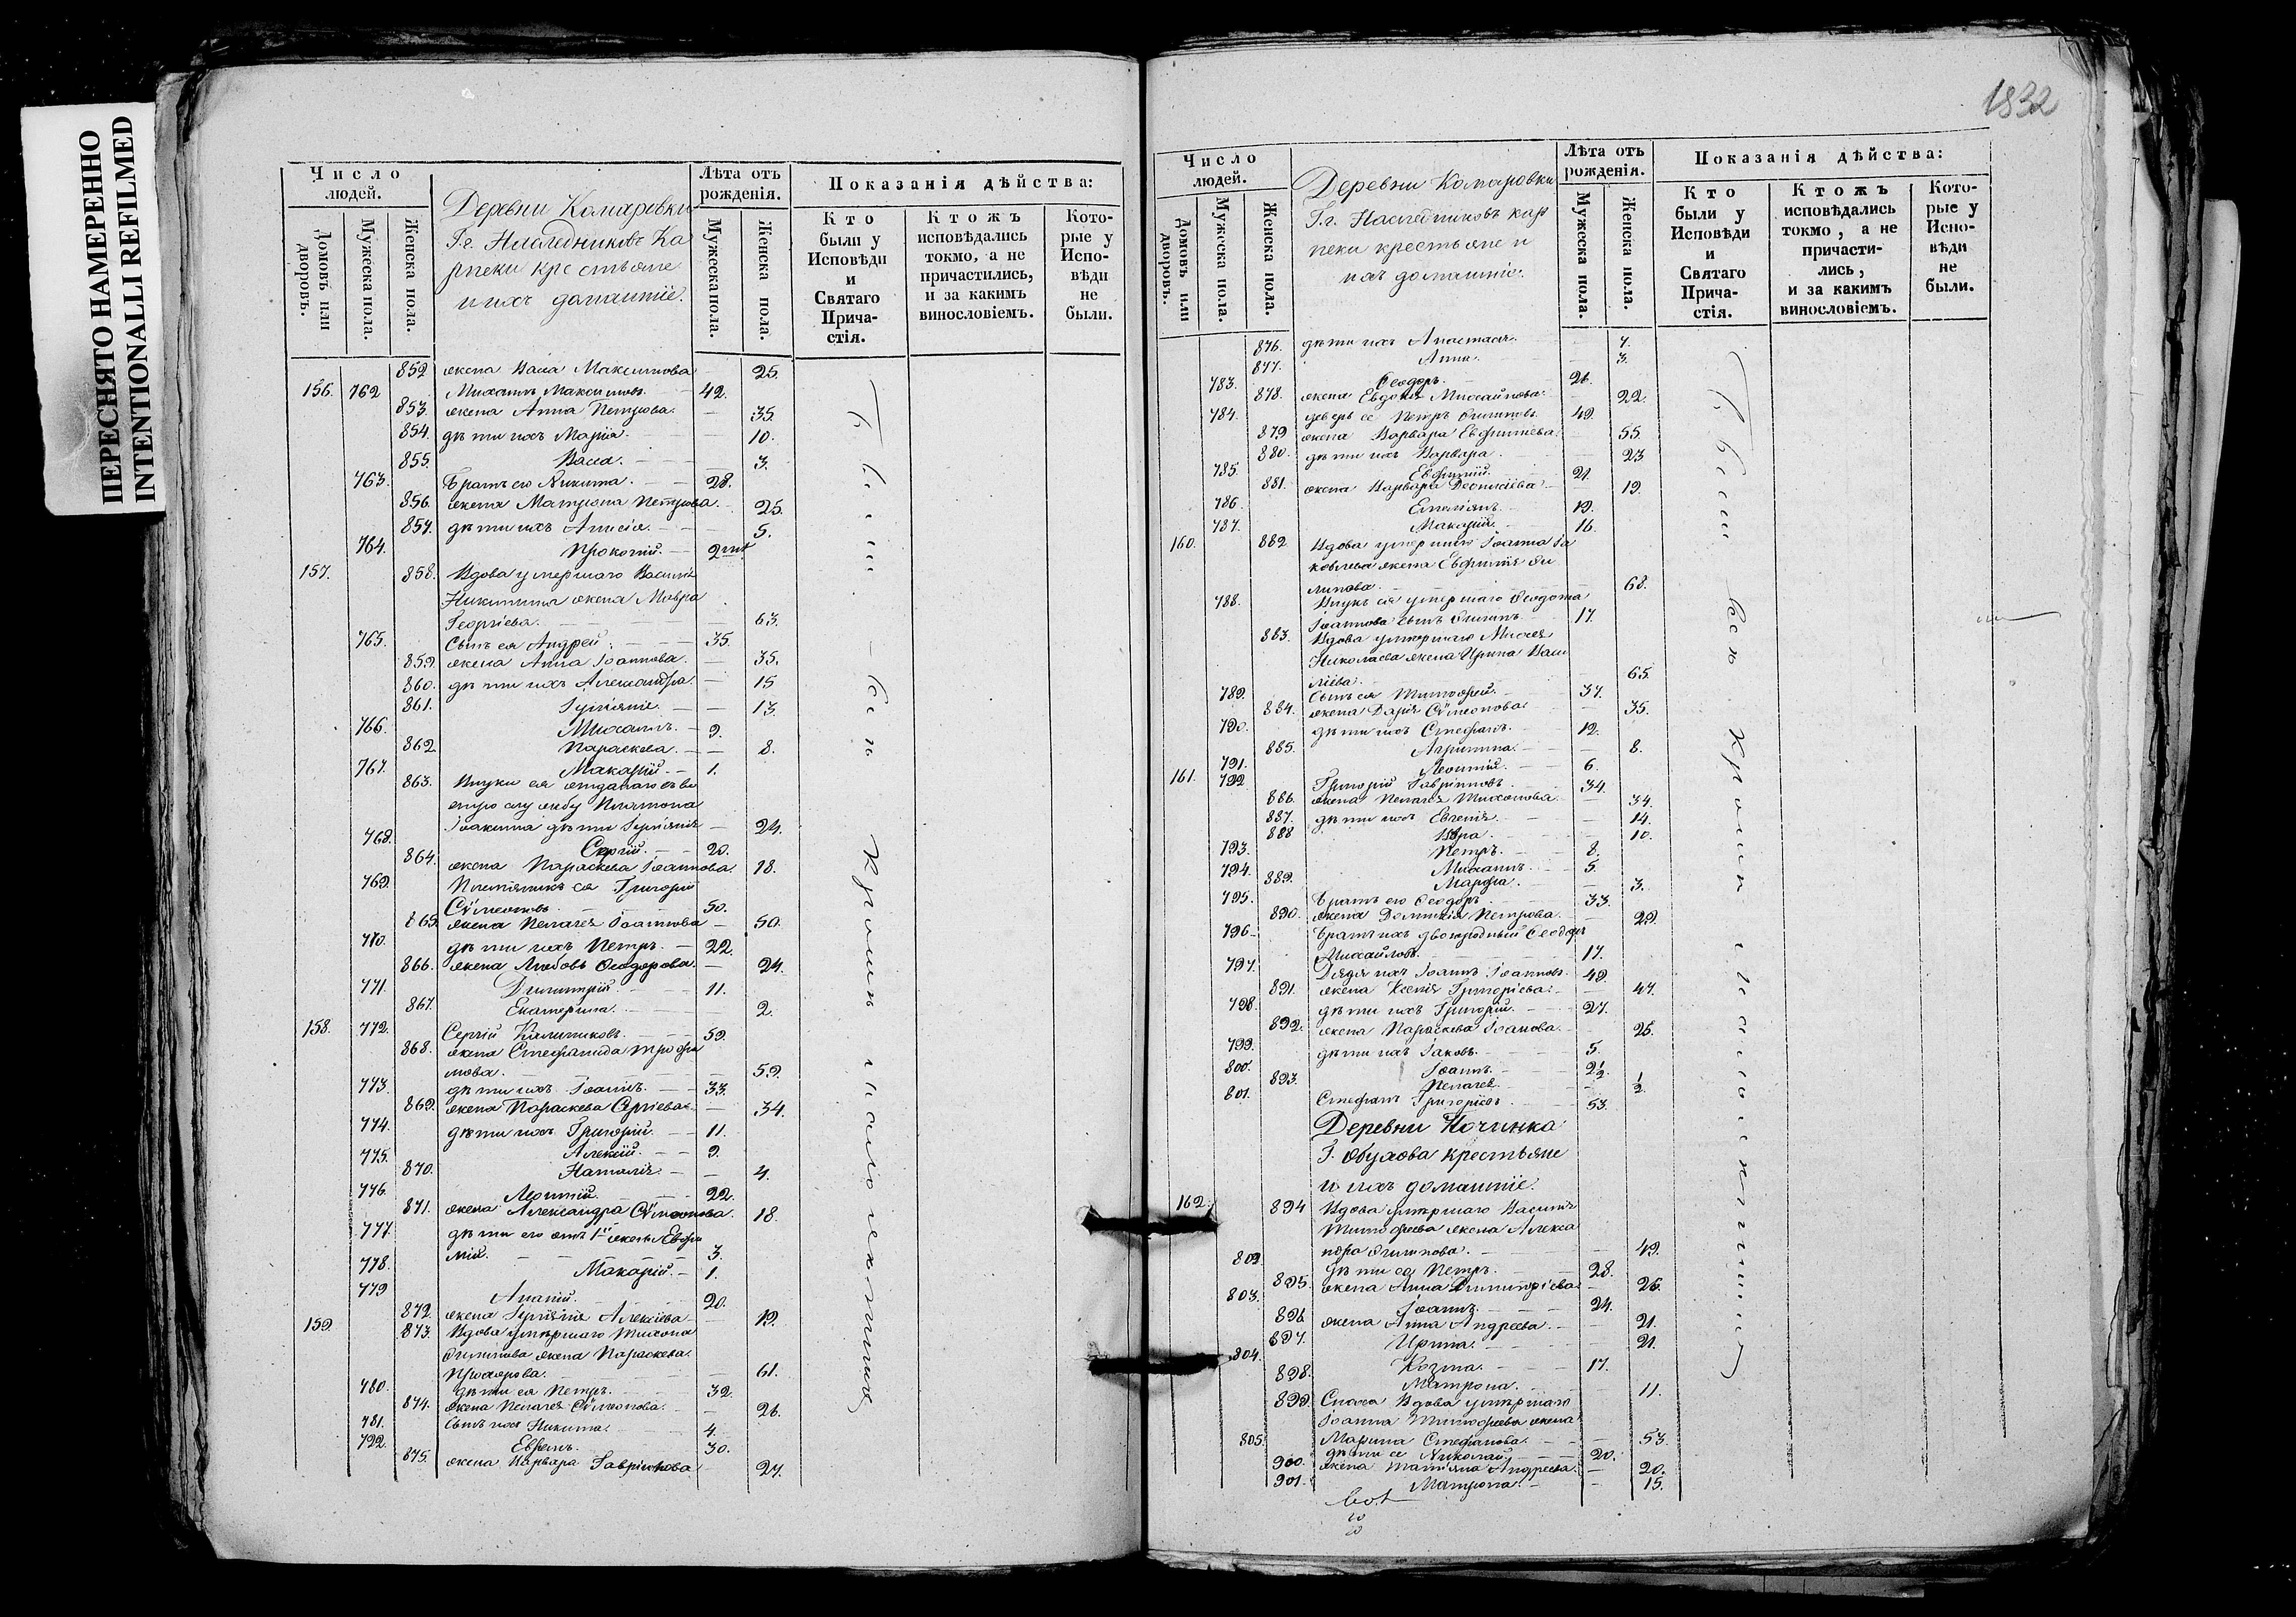 ПЕРЕСНЯТО НАМЕРЕННО
INTENTIONALLI REFILMED
Число людей.
Домовъ или дворовъ.
Мужеска пола.
Женска пола.
Деревни Комаровки
Г.г. Наследниковъ Ка
рпеки крестьяне
и ихъ домашніе.
Лѣта отъ рожденія.
Мужеска пола.
Женска пола.
Показанія дѣйства:
Кто были у Исповѣди и Святаго Прича-стія.
Ктожъ исповѣдались токмо, а не причастились, и за какимъ винословіемъ.
Кото-рые у Испо-вѣди не были.
852 жена Васса Максимова 25.
156. 762 Михаилъ Максимовъ. 42.
853. жена Анна Петрова. 35.
854. дѣти ихъ Марія. 10.
855. Васса. 3.
763. Братъ его Никита. 28.
856. жена Матрона Петрова. 25.
857. дѣти ихъ Анисія. 5.
764. Прокопій. 2
157. 858. Вдова умершаго Василія
Никитина жена Мавра
Георгіева. 63.
765. Сынъ ея Андрей. 35.
859. жена Анна Іоаннова. 35.
860. дѣти ихъ Александра. 15
861. Іуліанія. 13.
766. Михаилъ. 9.
862 Параскева. 8.
767. Макарій. 1.
863. Внуки ея отданаго въ во
енную службу Платона
Іоакима дѣти Іуліанія 24.
768. Сергій. 20.
864. жена Параскева Іоаннова. 18.
769. Племянникъ ея Григорій
Сѵмеоновъ. 50.
865. жена Пелагея Іоаннова 50.
770. дѣти ихъ Петръ. 22.
866. жена Любовь Ѳеодорова. 24.
771. Димитрій. 11.
867. Екатерина. 2.
158. 772. Сергій Калинниковъ. 59.
868. жена Стефанида Трофи
мова. 59.
773. дѣти ихъ Іоаннъ. 33.
869. жена Параскева Сергіева. 34.
774. дѣти ихъ Григорій. 11.
775. Алексій. 9.
870. Наталія. 4.
776. Леонтій. 22.
871. жена Александра Сѵмеонова. 18.
777. дѣти его отъ 1й жены Евфи
мій. 3.
778. Макарій. 1.
779 Ананій. 20.
872. жена Іуліанія Алексіева 19.
159. 873. Вдова умершаго Тихона
Филипова жена Параскева
Прохорова. 61.
780. дѣти ея Петръ. 32.
874. жена Пелагея Сѵмеонова. 26.
781. сынъ ихъ Никита. 4.
722. Ефремъ. 30.
875. жена Варвара Гавріилова 27.
1832
Число людей.
Домовъ или дворовъ.
Мужеска пола.
Женска пола.
Деревни Комаровки
Г.г. Наследниковъ кар
пеки крестьяне и
ихъ домашніе.
Лѣта отъ рожденія.
Мужеска пола.
Женска пола.
Показанія дѣйства:
Кто были у Исповѣди и Святаго Прича-стія.
Ктожъ исповѣдались токмо, а не причасти-лись, и за какимъ винословіемъ.
Кото-рые у Испо-вѣди не были.
876. дѣти ихъ Анастасія. 7.
877. Анна. 3.
783. Ѳеодоръ. 26.
878. жена Евдокія Михайлова. 22.
784. деверь ее Петръ Филиповъ. 49.
879 жена Варвара Евфимиева. 55.
880. дѣти ихъ Варвара. 23
785. Евфимій. 21.
881. жена Варвара Леонтіева 19.
786. Емеліянъ. 19.
787. Макарій. 16.
160. 882 Вдова умершаго Іоанна Іа
ковлева жена Евфимія Фи
липова. 68.
788. Внукъ ея умершаго Ѳеодота
Іоаннова сынъ Филипъ. 17.
883. Вдова умершаго Михея
Николаева жена Ирина Васи
ліева. 65.
789. Сынъ ея Тимофей. 37.
884. жена Дарія Сѵмеонова 35.
790. дѣти ихъ Стефанъ. 12.
885. Агрипина. 8.
791. Леонтій. 6.
161. 792. Григорій Гавріиловъ. 34.
886. жена Пелагея Тихонова. 34.
887. дѣти ихъ Евгенія. 14.
888 Вѣра. 10.
793. Петръ. 8.
794. Михаилъ. 5.
889. Марфа. 3.
795. Братъ его Ѳеодоръ. 33.
890. жена Домникія Петрова. 29.
796 Братъ ихъ двоюродный Ѳеодоръ
Михайловъ. 17.
797. Дядя ихъ Іоаннъ Іоанновъ. 49.
891. жена Ксенія Григоріева. 47.
798. дѣти ихъ Григорій. 27.
892. жена Параскева Іоанова. 25.
799. дѣти ихъ Іаковъ. 5.
800. Іоаннъ. 2½
893. Пелагея. ½
801. Стефанъ Григоріевъ. 53.
Деревни Починка
Г. Обухова крестьяне
и ихъ домашніе.
162. 894 Вдова умершаго Василія
Тимофеева жена Алекса
ндра Филипова. 49.
802. Дѣти ея Петръ. 28.
895. жена Анна Димитріева 26.
803. Іоаннъ. 24.
896 жена Анна Андреева. 21.
897. Ирина. 21.
804. Козма. 17.
898. Матрона. 11.
899 Сноха Вдова умершаго
Іоанна Тимофеева жена
Марина Стефанова. 53.
805. дѣти ее Николай. 20.
900. жена Татіяна Андреева. 20.
901. Матрона. 15.